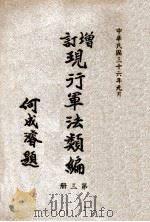 中華民國三十六年元月
增訂現行軍法類編
第三冊
何成濬題